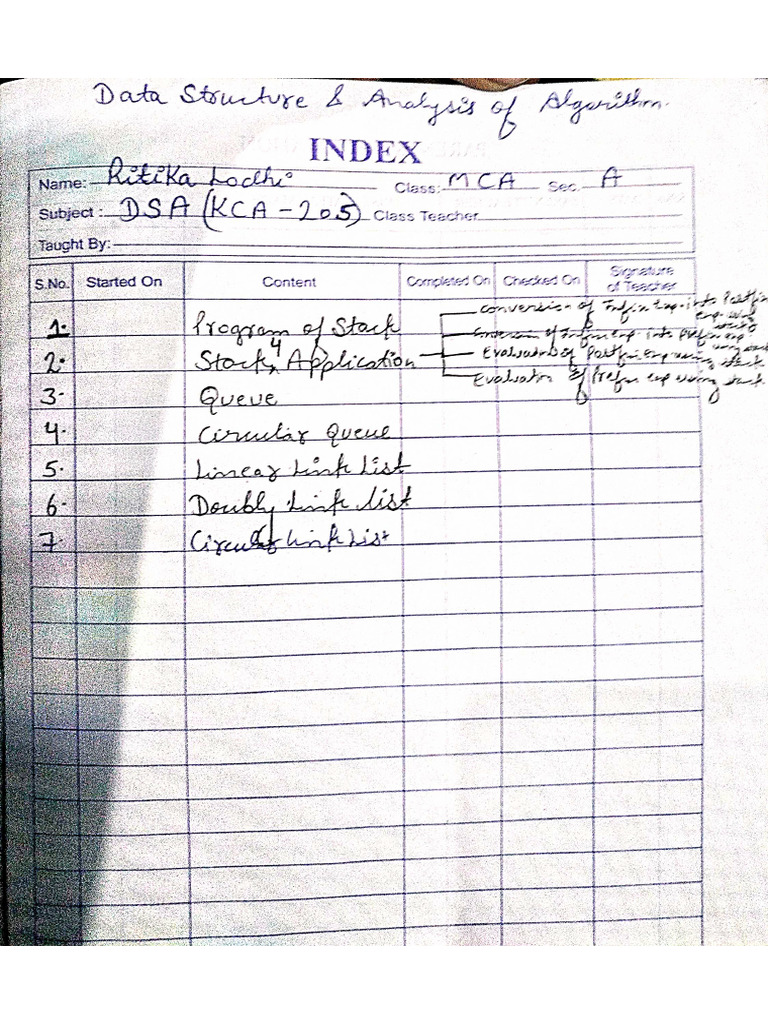 Data Structure & Analysis of Algorithm.
INDEX
Name: Ritika Lodhi Class: MCA Sec. A
Subject: DSA (KCA-205) Class Teacher
Taught By:
S.No. Started On Content Completed On Checked On Signature of Teacher
1. Program of Stack
conversion of Infix Exp. into Postfix exp using stack
2. Stack 4 Application
Conversion of Infix exp into Prefix exp using stack
Evaluation of Postfix exp using stack.
Evaluation of Prefix exp using stack.
3. Queue
4. Circular Queue
5. Linear Link List
6. Doubly Link List
7. Circular Link List